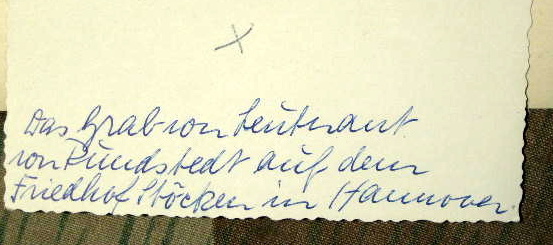 x
Das Grab von Leutnant
von Rundstedt auf dem
Friedhof Stöcken in Hannover.